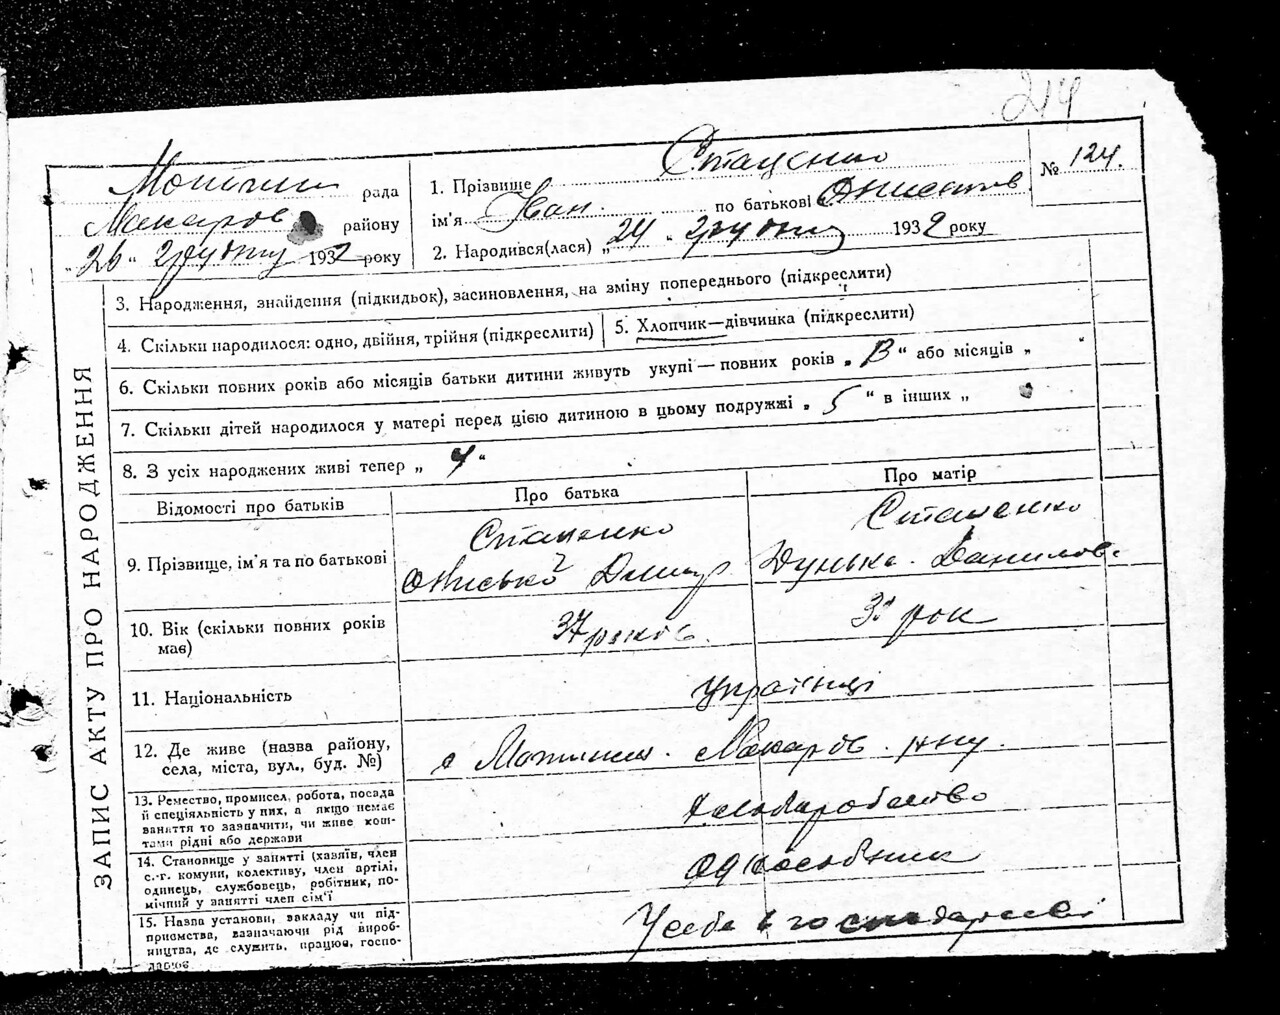 214
Мотижин рада
Макарів району
„26“ грудня 1932 року
1. Прізвище Стаценко
ім'я Іван по батькові Онисимов
2. Народився(лася) „24“ грудня 1932 року
№ 124.
ЗАПИС АКТУ ПРО НАРОДЖЕННЯ
3. Народження, знайдення (підкидьок), засиновлення, на зміну попереднього (підкреслити)
4. Скільки народилося: одно, двійня, трійня (підкреслити)
5. Хлопчик—дівчинка (підкреслити)
6. Скільки повних років або місяців батьки дитини живуть укупі — повних років „ “ або місяців „ “
7. Скільки дітей народилося у матері перед цією дитиною в цьому подружжі „ 5 “ в інших „
8. З усіх народжених живі тепер „ 4 “
Відомості про батьків
Про батька
Про матір
9. Прізвище, ім'я та по батькові
Стаценко
Дмитр
Стаценко
Дунька Данилов.
10. Вік (скільки повних років має)
37 років.
рок
11. Національність
українці
12. Де живе (назва району, села, міста, вул., буд. №)
с Мотижин. Макарів. р-ну.
13. Ремество, промисел, робота, посада
й спеціяльність у них, а якщо немає
заняття то зазначити, чи живе кош-
тами рідні або держави
хліборобство
14. Становище у занятті (хазяїн, член
с.-г. комуни, колективу, член артілі,
одинець, службовець, робітник, по-
мічний у занятті член сім'ї
одноосібник
15. Назва установи, закладу чи під-
приємства, вазначаючи рід вироб-
ництва, де служить, працює, госпо-
дарює
У себе в господарстві